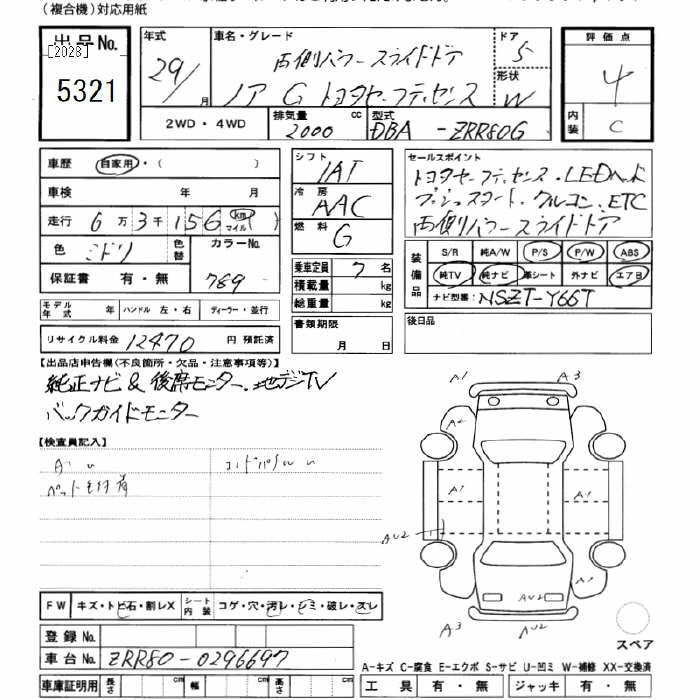 (複合機)対応用紙
出品No. [2028] 5321
年式 29/ 月
車名・グレード 両側パワースライドドア
ノア G トヨタセーフティセンス
ドア 5
形状 W
評価点 4
内装 C
2WD・4WD
排気量 2000 cc
型式 DBA-ZRR80G
車歴 自家用・( )
車検 年 月
走行 6万3千156 km マイル ( )
色 ミドリ 色替 カラーNo. 789
保証書 有・無
シフト IAT
冷房 AAC
燃料 G
乗車定員 7名
積載量 kg
総重量 kg
セールスポイント
トヨタセーフティセンス・LEDヘッド
プッシュスタート・クルコン・ETC
両側パワースライドドア
装備品 S/R 純A/W P/S P/W ABS
純TV 純ナビ 革シート 外ナビ エアB
ナビ型番: NSZT-Y66T
モデル年式 年 ハンドル 左・右 ディーラー・並行
リサイクル料金 12470 円 預託済
書類期限 月 日
後日品
【出品店申告欄(不良箇所・欠品・注意事項等)】
純正ナビ&後席モニター・地デジTV
バックガイドモニター
【検査員記入】
A1 A3
A2
A1 A1
AU2
A1
AU2
A3 AU2
FW キズ・トビ石・割レX シート内装 コゲ・穴・汚レ・シミ・破レ・スレ
登録No.
車台No. ZRR80-0296697
車庫証明用 長さ cm 幅 cm 高さ cm
スペア
A-キズ C-腐食 E-エクボ S-サビ U-凹ミ W-補修 XX-交換済
工具 有・無 ジャッキ 有・無